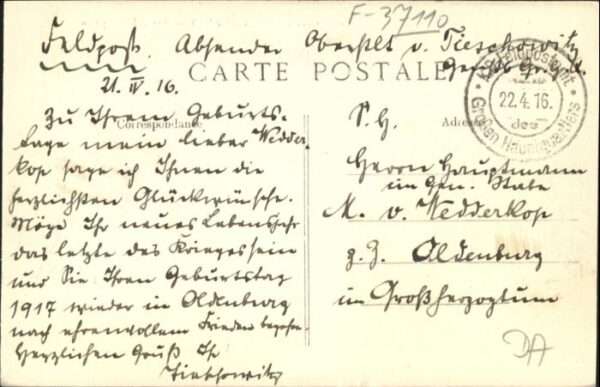 F-37110
Feldpost. Absender Oberstlt v. Tieschowitz
CARTE POSTALE
21. IV. 16.
Correspondance
Zu Ihrem Geburts-
tage mein lieber Wedder-
kop sage ich Ihnen die
herzlichsten Glückwünsche.
Möge Ihr neues Lebensjahr
das letzte des Krieges sein
und Sie Ihren Geburtstag
1917 wieder in Oldenburg
nach ehrenvollem Frieden begehen.
Herzlichen Gruß Ihr
Tieschowitz
K.D. Feldpostamt
22.4.16.
des
Großen Hauptquartiers
S. H.
Herrn Hauptmann
im Gen. Stabe
M. v. Wedderkop
z. Z. Oldenburg
im Großherzogtum
DA